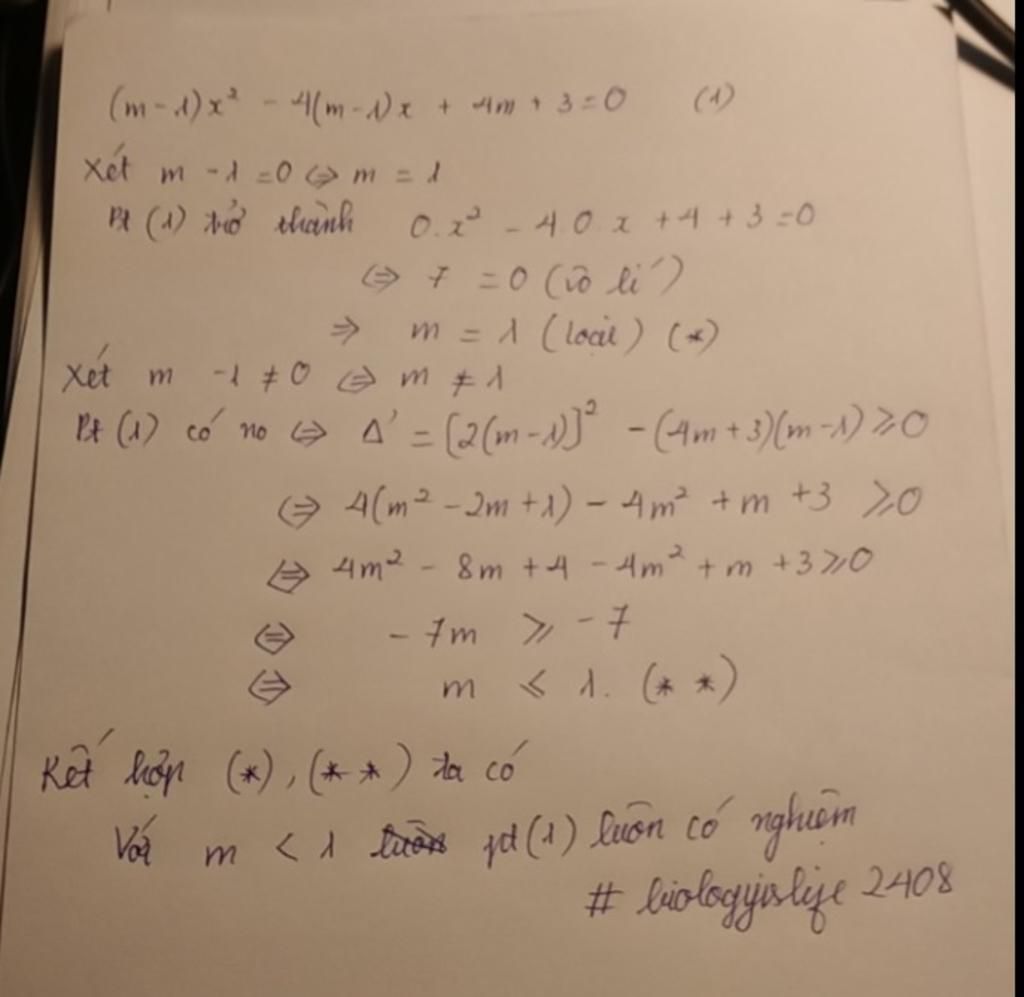 (m-1)x² - 4(m-1)x + 4m + 3 = 0 (1)
Xét m - 1 = 0 ⇔ m = 1
Pt (1) trở thành 0.x² - 4.0.x + 4 + 3 = 0
⇔ 7 = 0 (vô lí)
⇒ m = 1 (loại) (*)
Xét m - 1 ≠ 0 ⇔ m ≠ 1
Pt (1) có no ⇔ Δ' = [2(m-1)]² - (4m+3)(m-1) ≥ 0
⇔ 4(m² - 2m + 1) - 4m² + m + 3 ≥ 0
⇔ 4m² - 8m + 4 - 4m² + m + 3 ≥ 0
⇔ -7m ≥ -7
⇔ m ≤ 1. (**)
Kết hợp (*), (**) ta có
Với m < 1 luôn pt (1) luôn có nghiệm
# biologyislife 2408